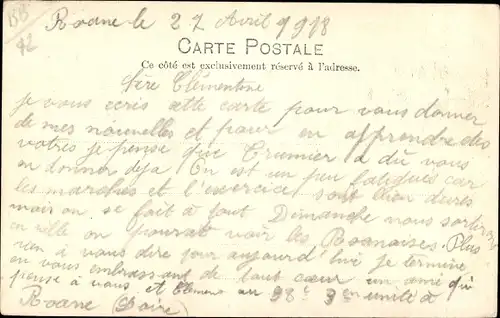 BB
92
Roane le 27 Avril 1918
CARTE POSTALE
Ce côté est exclusivement réservé à l'adresse.
Clémentine
je vous ecris cette carte pour vous donner
de mes nouvelles et pour en apprendre des
votres je pense que Crumier a dû vous
en donner deja On est un peu fatigués car
les marches et l'exercice sont bien dures
mais on se fait à tout Dimanche nous sortirons
en ville on pourrat voir les Roanaises Plus
rien à vous dire pour aujourd'hui je termine
en vous embrassant de tout cœur un ami qui
pense à vous et au 98e
Roane (Loire)